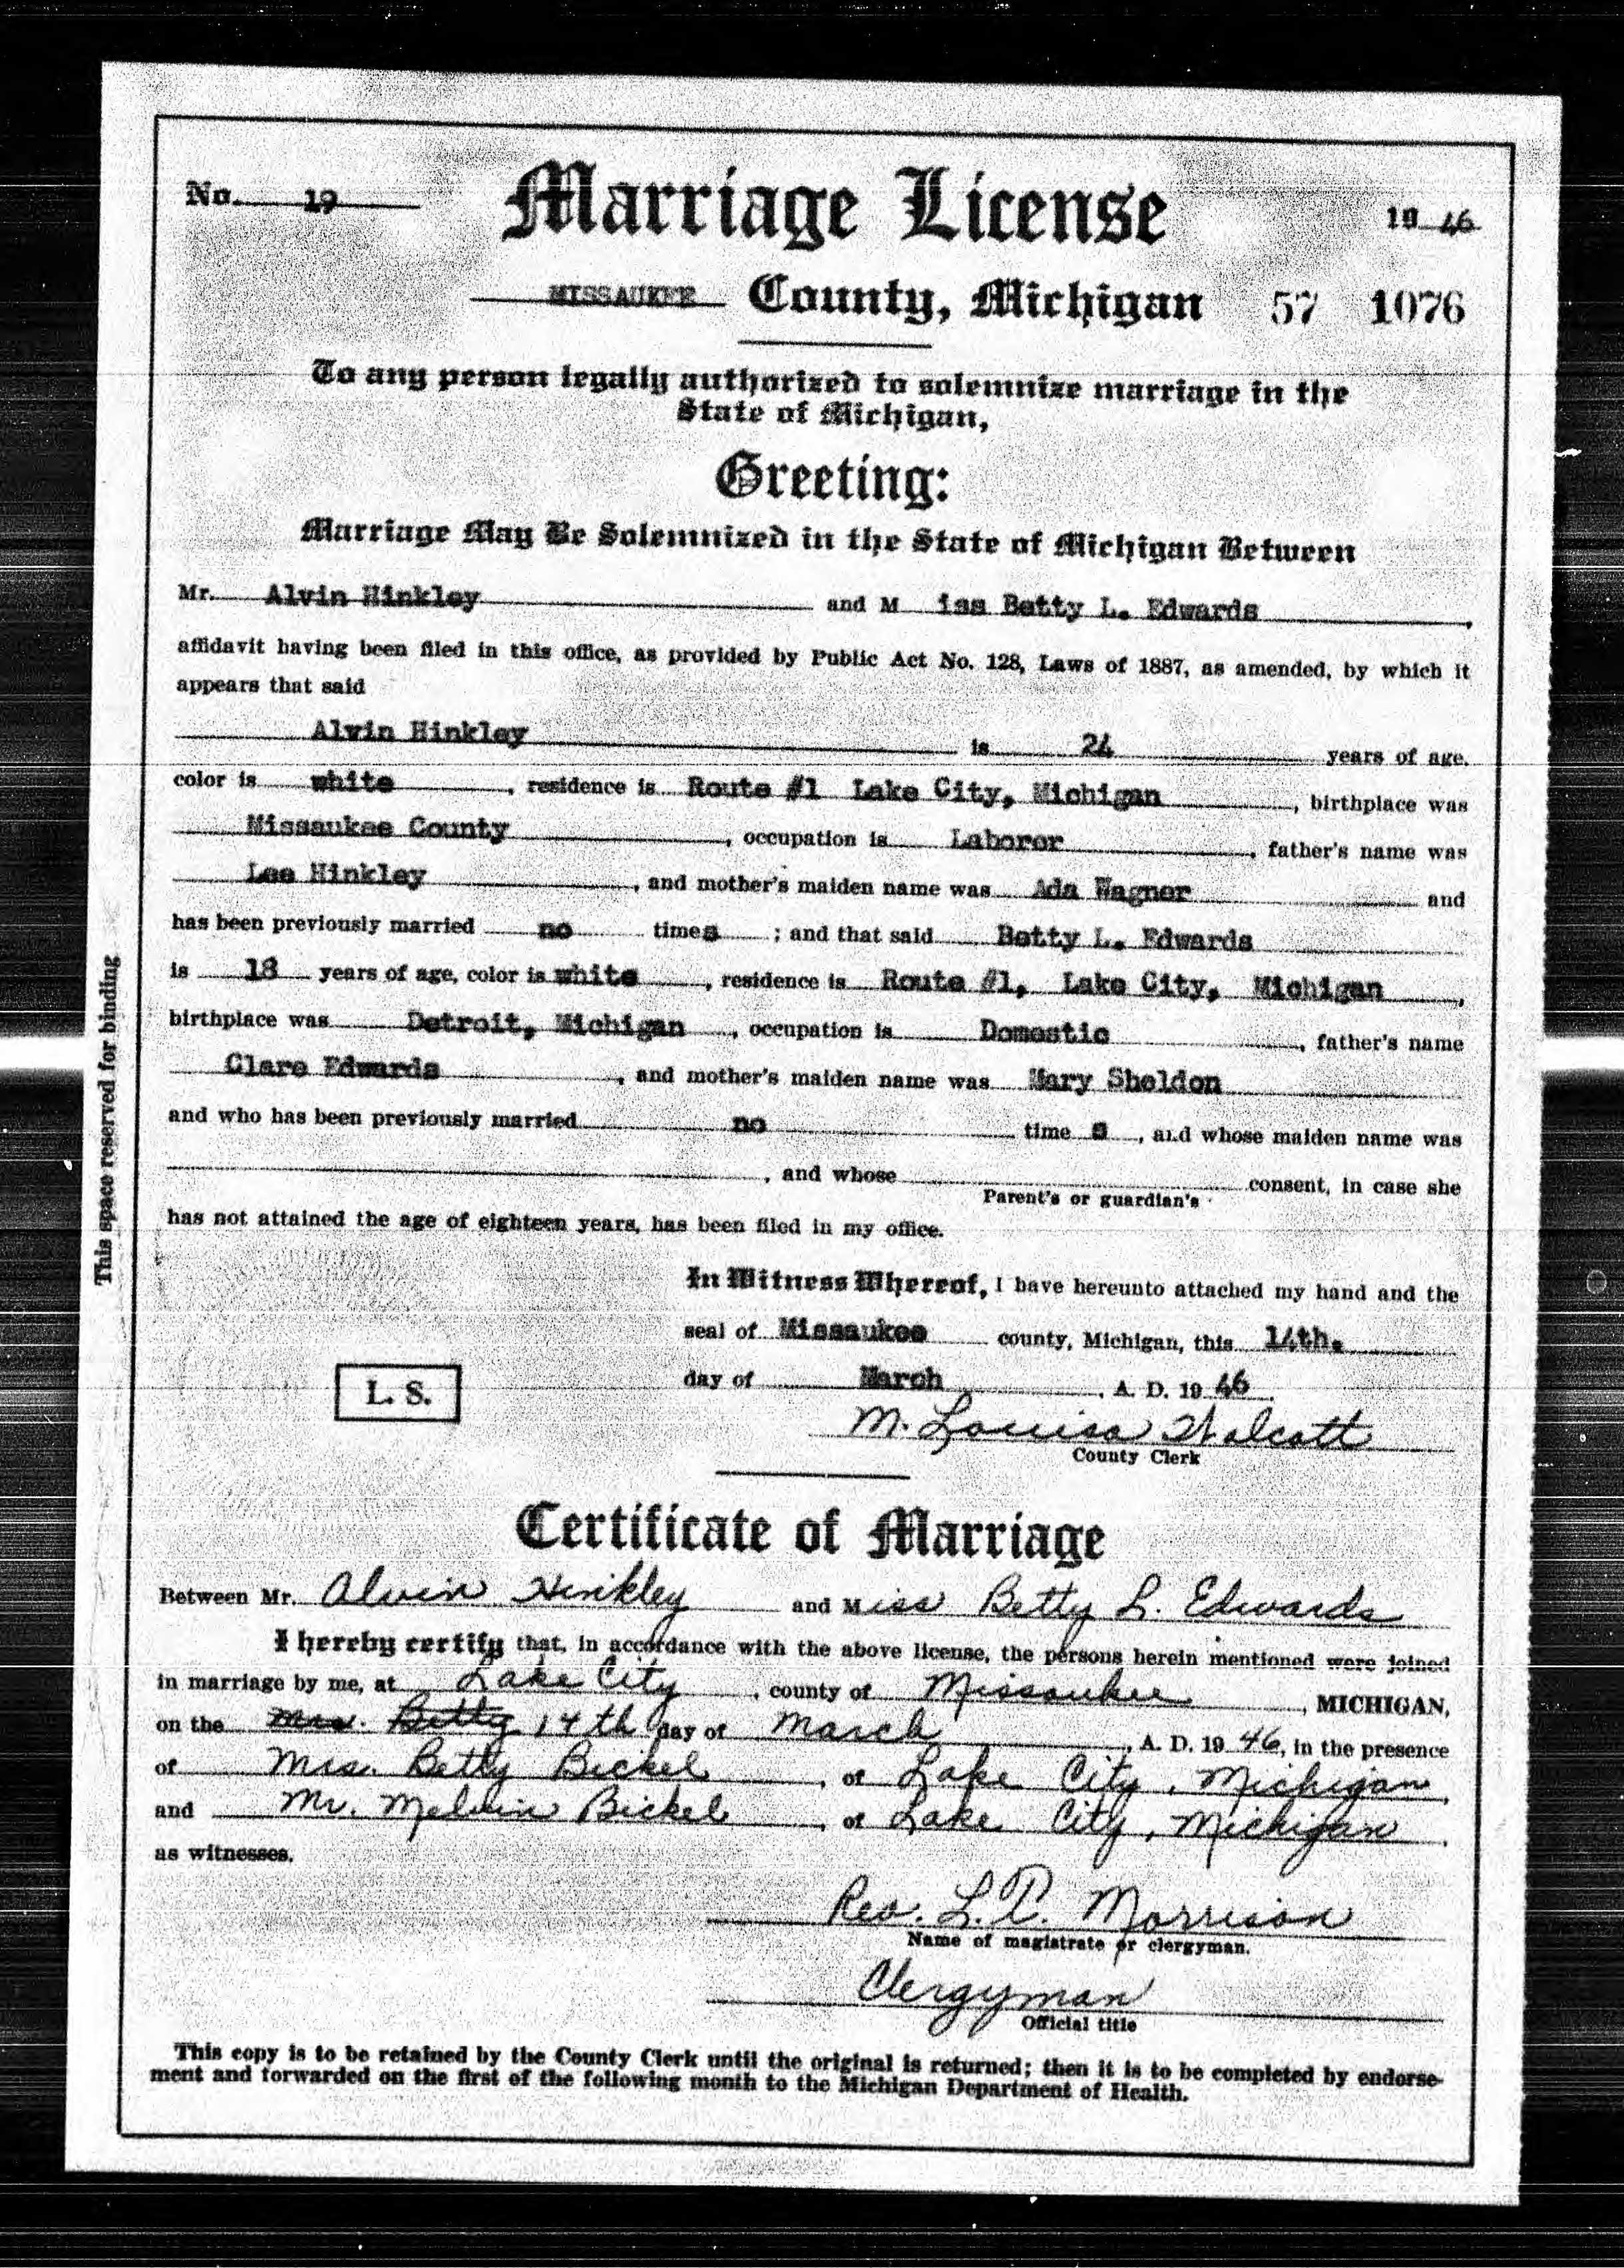 No. 19 Marriage License 1946
MISSAUKEE County, Michigan 57 1076
To any person legally authorized to solemnize marriage in the
State of Michigan,
Greeting:
Marriage May Be Solemnized in the State of Michigan Between
Mr. Alvin Hinkley and M iss Betty L. Edwards,
affidavit having been filed in this office, as provided by Public Act No. 128, Laws of 1887, as amended, by which it
appears that said
Alvin Hinkley is 24 years of age,
color is white, residence is Route #1 Lake City, Michigan, birthplace was
Missaukee County, occupation is Laboror, father's name was
Lee Hinkley, and mother's maiden name was Ada Wagner and
has been previously married no times; and that said Betty L. Edwards
is 18 years of age, color is white, residence is Route #1, Lake City, Michigan,
birthplace was Detroit, Michigan, occupation is Domestic, father's name
Clare Edwards, and mother's maiden name was Mary Sheldon
and who has been previously married no time s, and whose maiden name was
, and whose consent, in case she
Parent's or guardian's
has not attained the age of eighteen years, has been filed in my office.
This space reserved for binding
In Witness Whereof, I have hereunto attached my hand and the
seal of Missaukee county, Michigan, this 14th.
day of March, A. D. 1946.
L. S.
M. Louisa Walcott
County Clerk
Certificate of Marriage
Between Mr. Alvin Hinkley and Miss Betty L. Edwards
I hereby certify that, in accordance with the above license, the persons herein mentioned were joined
in marriage by me, at Lake City, county of Missaukee, MICHIGAN,
on the Mrs. Betty 14th day of March, A. D. 1946, in the presence
of Mrs. Betty Bickel, of Lake City, Michigan,
and Mr. Melvin Bickel, of Lake City, Michigan,
as witnesses.
Rev. L. P. Morrison
Name of magistrate or clergyman.
Clergyman
Official title
This copy is to be retained by the County Clerk until the original is returned; then it is to be completed by endorse-
ment and forwarded on the first of the following month to the Michigan Department of Health.